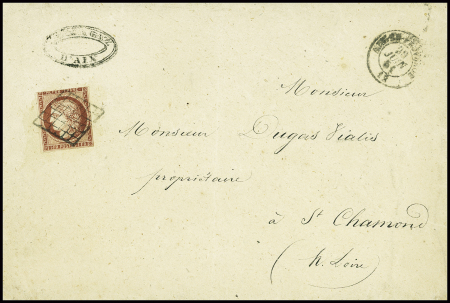 D'AIX
Monsieur
Monsieur Dugas Vialis
propriétaire
à St Chamond
(h. Loire)